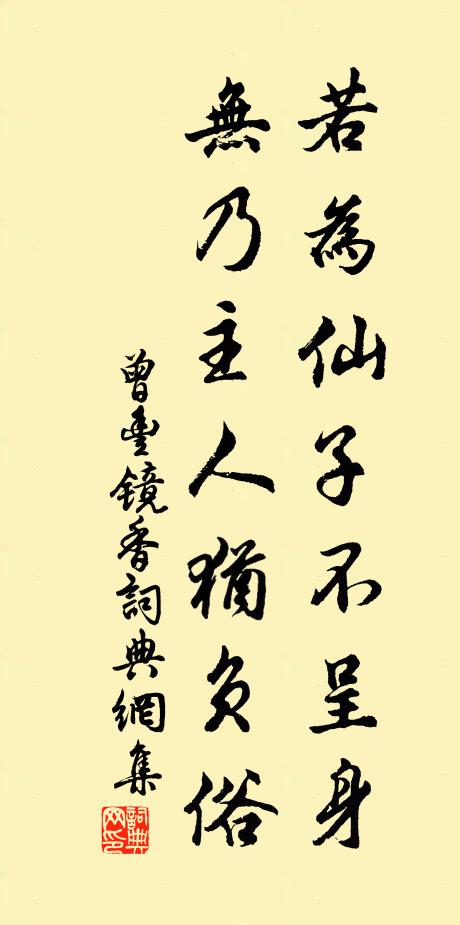 若為仙子不呈身
無乃主人猶負俗
曾豊鏡香詞典網集
詞典网印